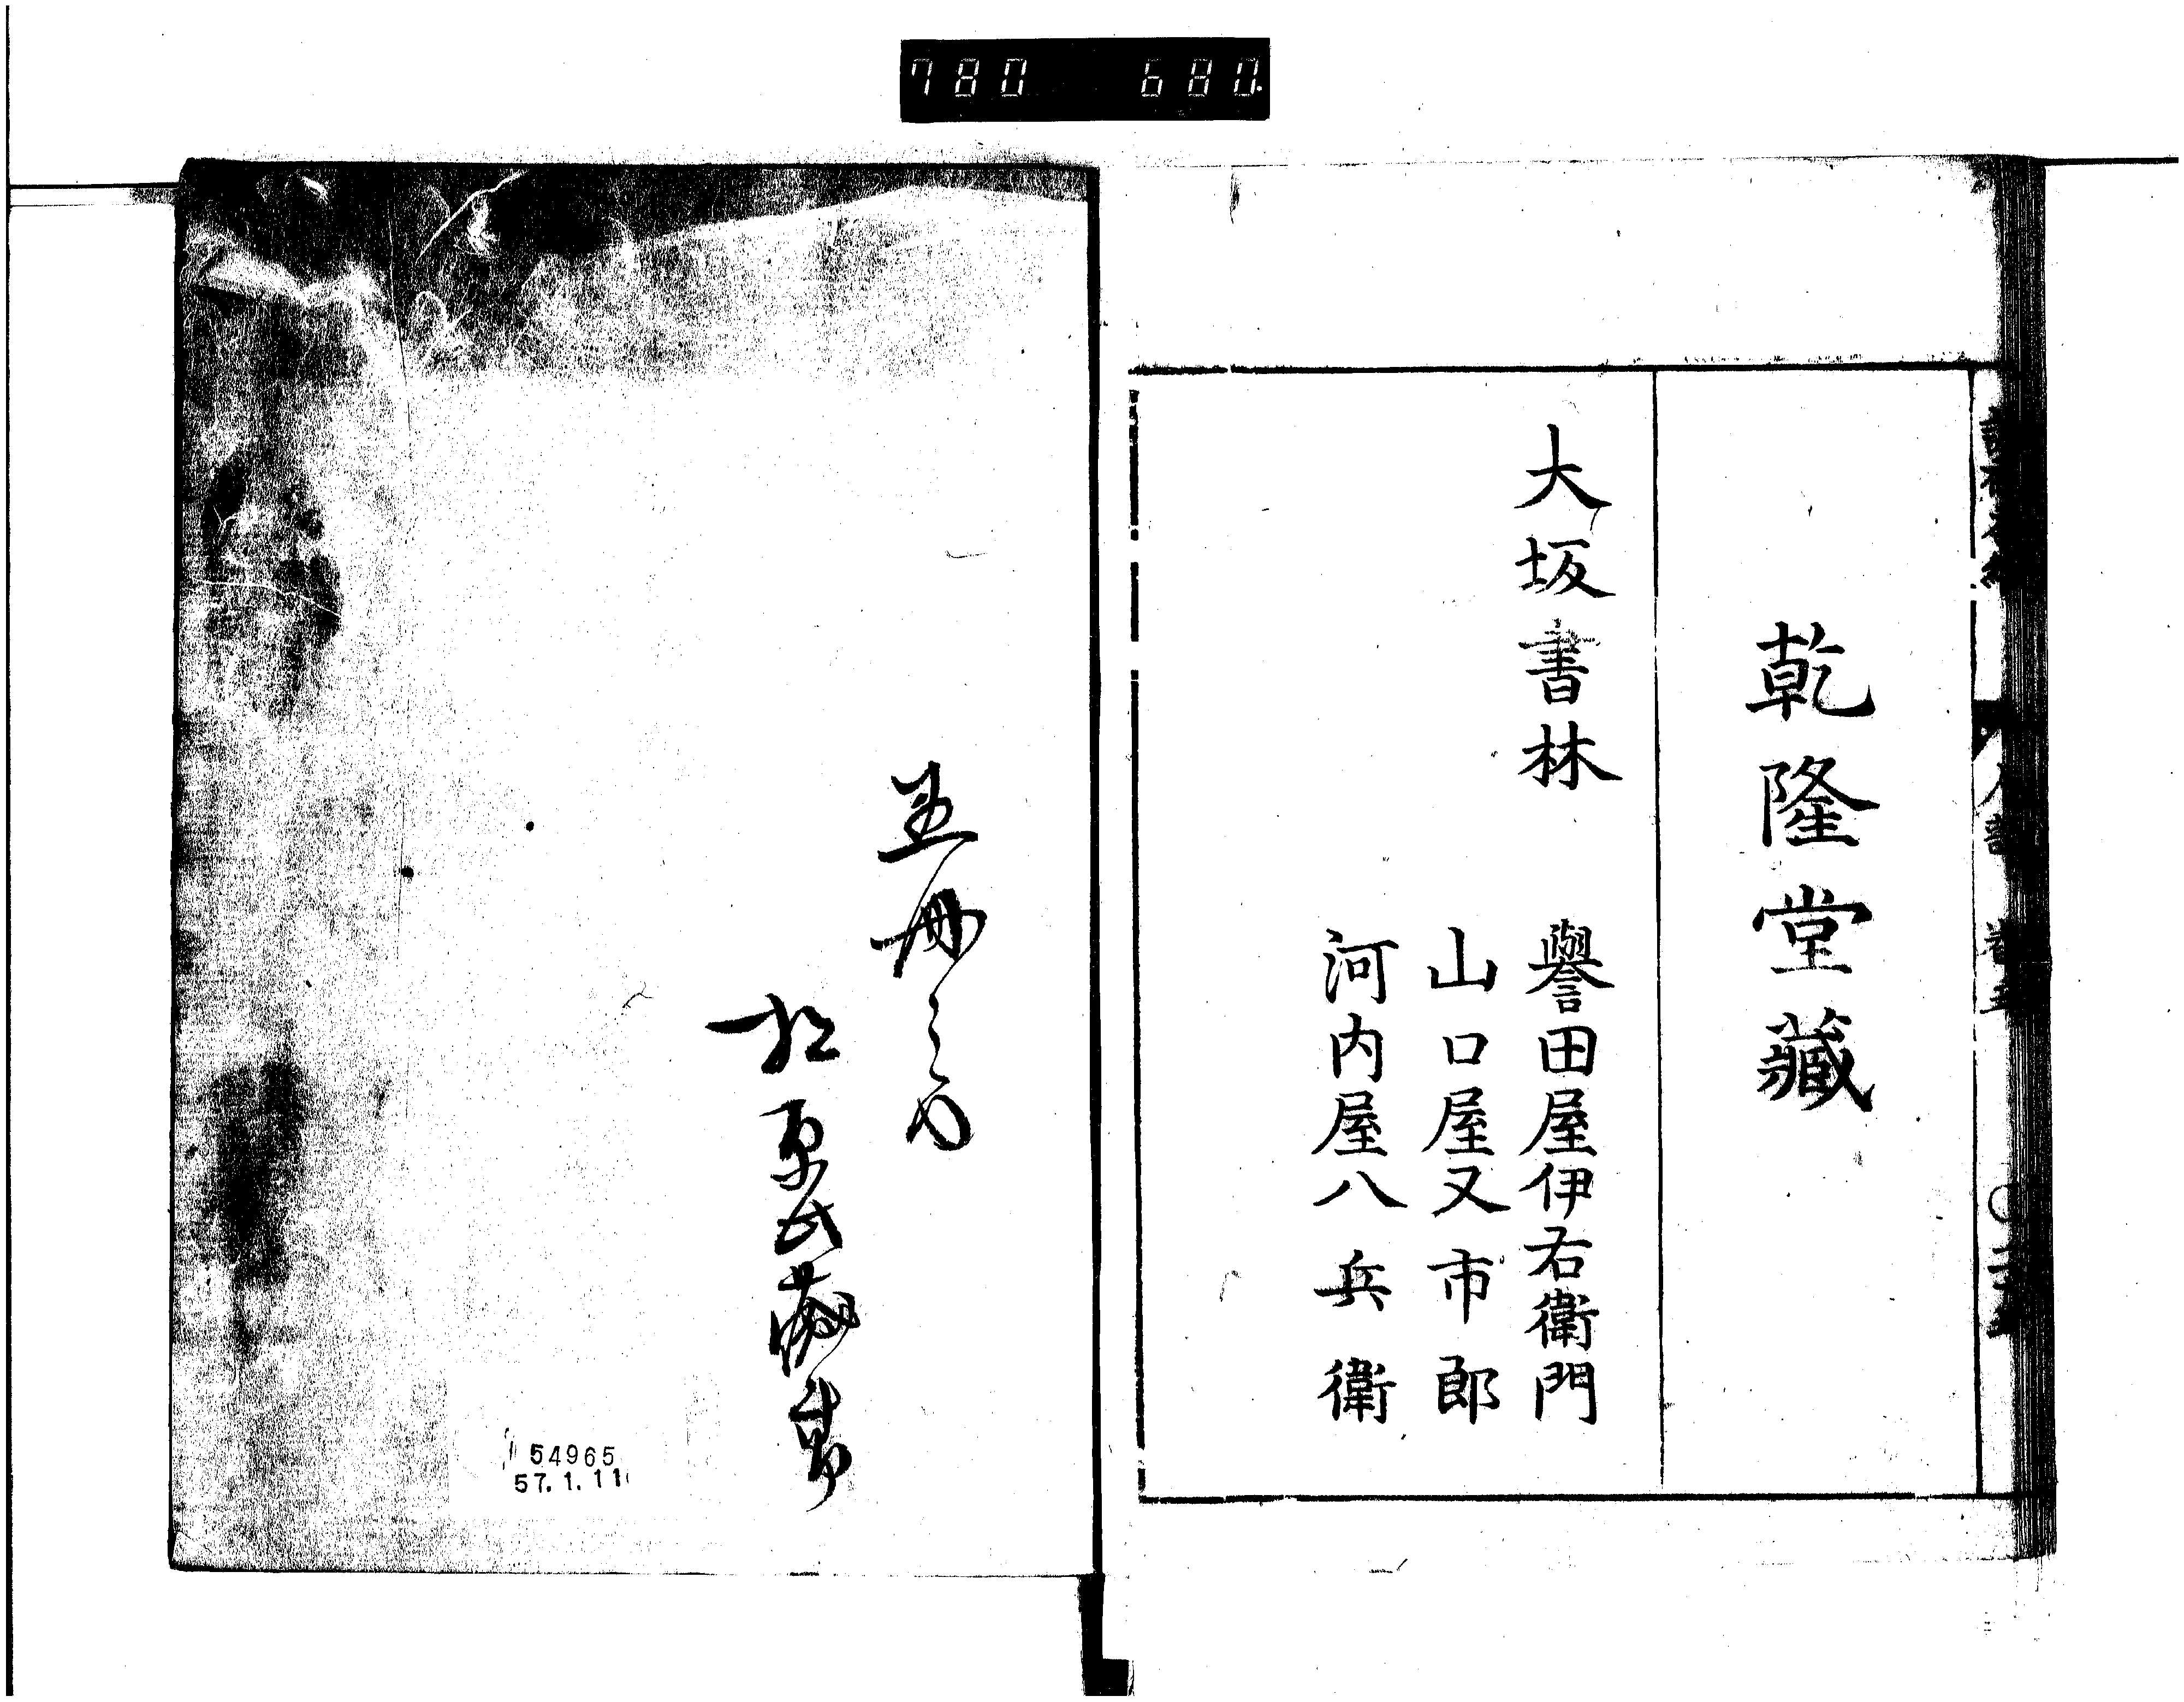 780 680.
乾隆堂藏
大坂書林
譽田屋伊右衛門
山口屋又市郎
河内屋八兵衛
五冊之内
松原氏藏書
54965
57.1.11